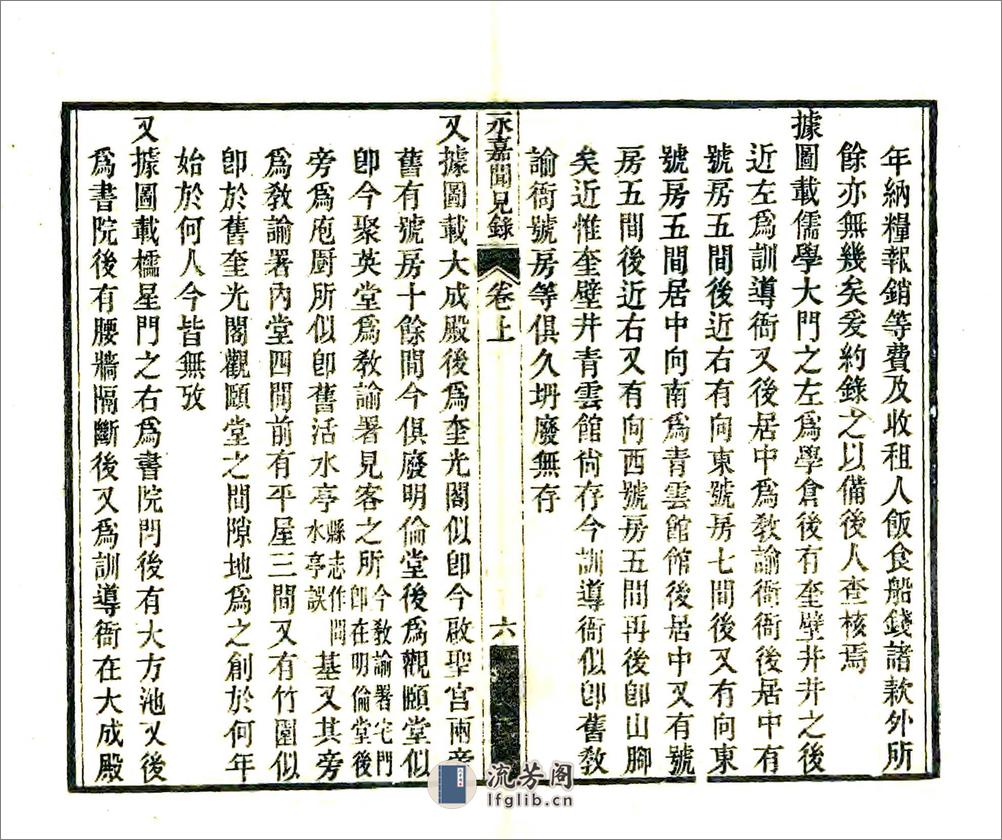 年納糧報銷等費及收租人飯食船錢諸款外所
餘亦無幾矣爰約錄之以備後人查核焉
據圖載儒學大門之左爲學倉後有奎壁井井之後
近左爲訓導衙又後居中爲敎諭衙衙後居中有
號房五間後近右有向東號房七間後又有向東
號房五間居中向南爲青雲館館後居中又有號
房五間後近右又有向西號房五間再後卽山腳
矣近惟奎壁井青雲館尙存今訓導衙似卽舊敎
諭衙號房等俱久坍廢無存
永嘉聞見錄 卷上 六
又據圖載大成殿後爲奎光閣似卽今啟聖宮兩旁
舊有號房十餘間今俱廢明倫堂後爲觀頤堂似
卽今聚英堂爲敎諭署見客之所今敎諭署宅門卽在明倫堂後
旁爲庖厨所似卽舊活水亭縣志作閒水亭誤基又其旁
爲敎諭署內堂四間前有平屋三間又有竹園似
卽於舊奎光閣觀頤堂之間隙地爲之創於何年
始於何人今皆無攷
又據圖載櫺星門之右爲書院門後有大方池又後
爲書院後有腰牆隔斷後又爲訓導衙在大成殿
流芳阁
lfglib.cn